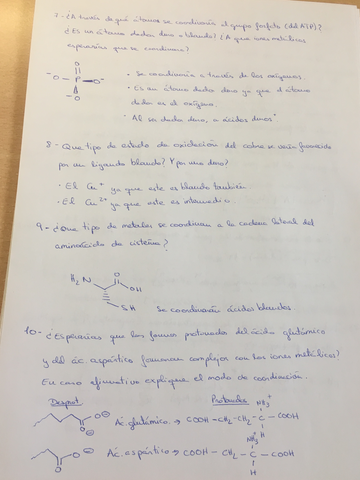 7-¿A través de qué átomos se coordinaría el grupo fosfato (del ATP)?
¿Es un átomo dador duro o blando? ¿A que iones metálicos
esperarías que se coordinara?
O
-O-P-O-
O-
• Se coordinaría a través de los oxígenos.
• Es un átomo dador duro ya que el átomo
dador es el oxígeno.
• Al ser dador duro, a ácidos duros
8- Que tipo de estado de oxidación del cobre se vería favorecido
por un ligando blando? Y por uno duro?
• El Cu+ ya que este es blando también
• El Cu2+ ya que este es intermedio
9- ¿Qué tipo de metales se coordinan a la cadena lateral del
aminoácido de cisteína?
H2N
O
OH
SH
Se coordinarán ácidos blandos.
10- ¿Esperarías que las formas protonadas del ácido glutámico
y del ác. aspártico formaran complejos con los iones metálicos?
En caso afirmativo explique el modo de coordinación.
Desprot
Protonadas
NH3+
Ac. glutámico → COOH-CH2-CH2-C-COOH
H
NH3+
Ac. aspártico → COOH-CH2-C-COOH
H